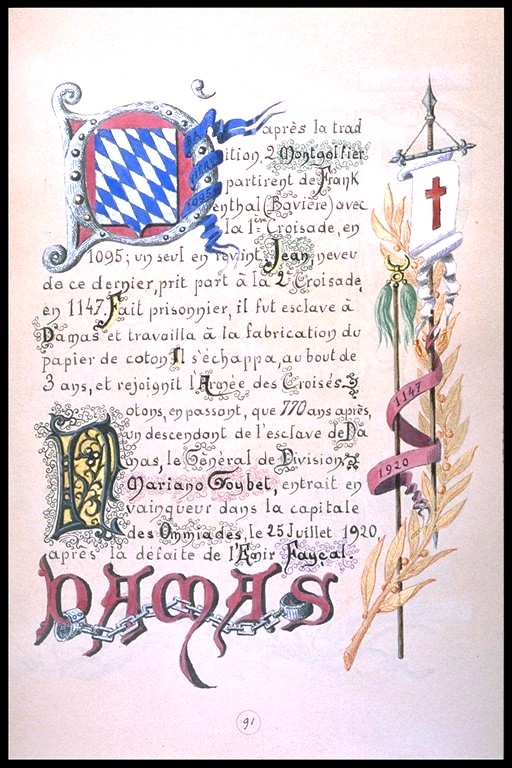 D'après la trad
ition, 2 Montgolfier
partirent de Frank
enthal (Bavière) avec
la 1ère Croisade, en
1095; un seul en revint. Jean, neveu
de ce dernier, prit part à la 2e Croisade,
en 1147. Fait prisonnier, il fut esclave à
Damas et travailla à la fabrication du
papier de coton. Il s'échappa, au bout de
3 ans, et rejoignit l'Armée des Croisés.
Notons, en passant, que 770 ans après,
un descendant de l'esclave de Da
mas, le Général de Division
Mariano Goybet, entrait en
vainqueur dans la capitale
des Ommiades, le 25 Juillet 1920,
après la défaite de l'Emir Fayçal.
DAMAS
1147
1920
91